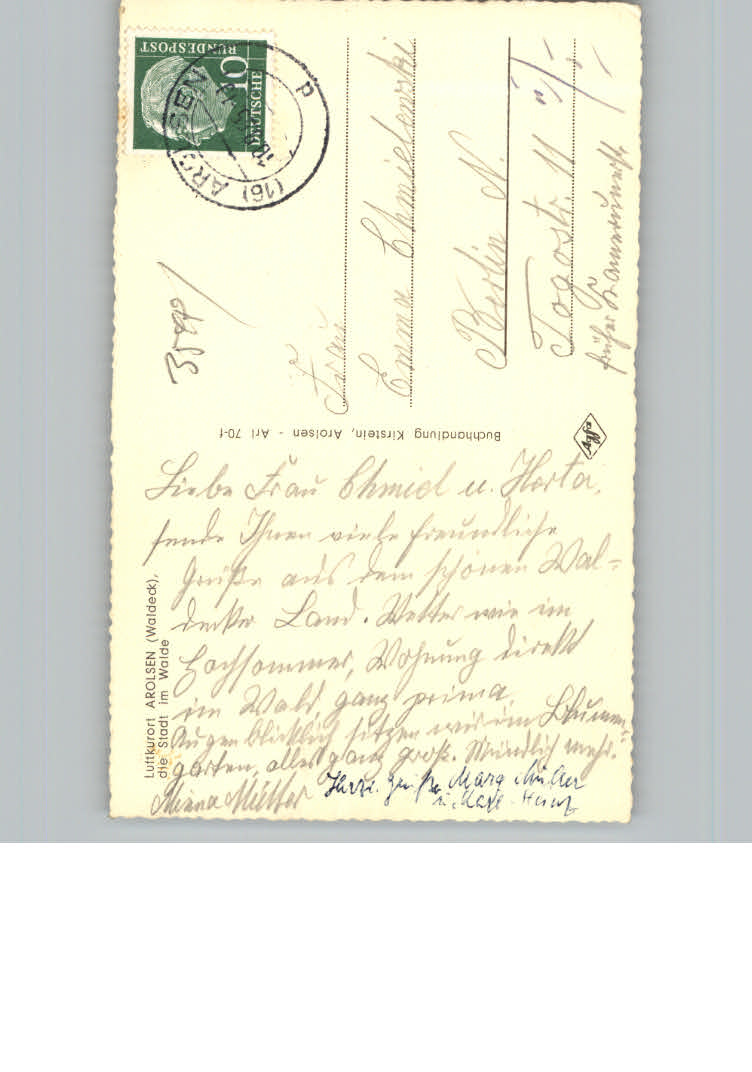 DEUTSCHE
BUNDESPOST
10
(16) AROLSEN
p
3548
Frau
Emma Chmielewski
Berlin N.
Togostr. 11
früher Kamerunerstr.
Agfa
Buchhandlung Kirstein, Arolsen - Arl 70-f
Luftkurort AROLSEN (Waldeck),
die Stadt im Walde
Liebe Frau Chmiel u. Herta,
sende Ihnen viele freundliche
Grüße aus dem schönen Wal-
decker Land. Wetter wie im
Hochsommer, Wohnung direkt
im Wald, ganz prima.
Augenblicklich sitzen wir im Blumen-
garten, alles ganz groß. Mündlich mehr.
Minna Müller
Herzl. Grüße Marg. Müller
u. Karl-Heinz